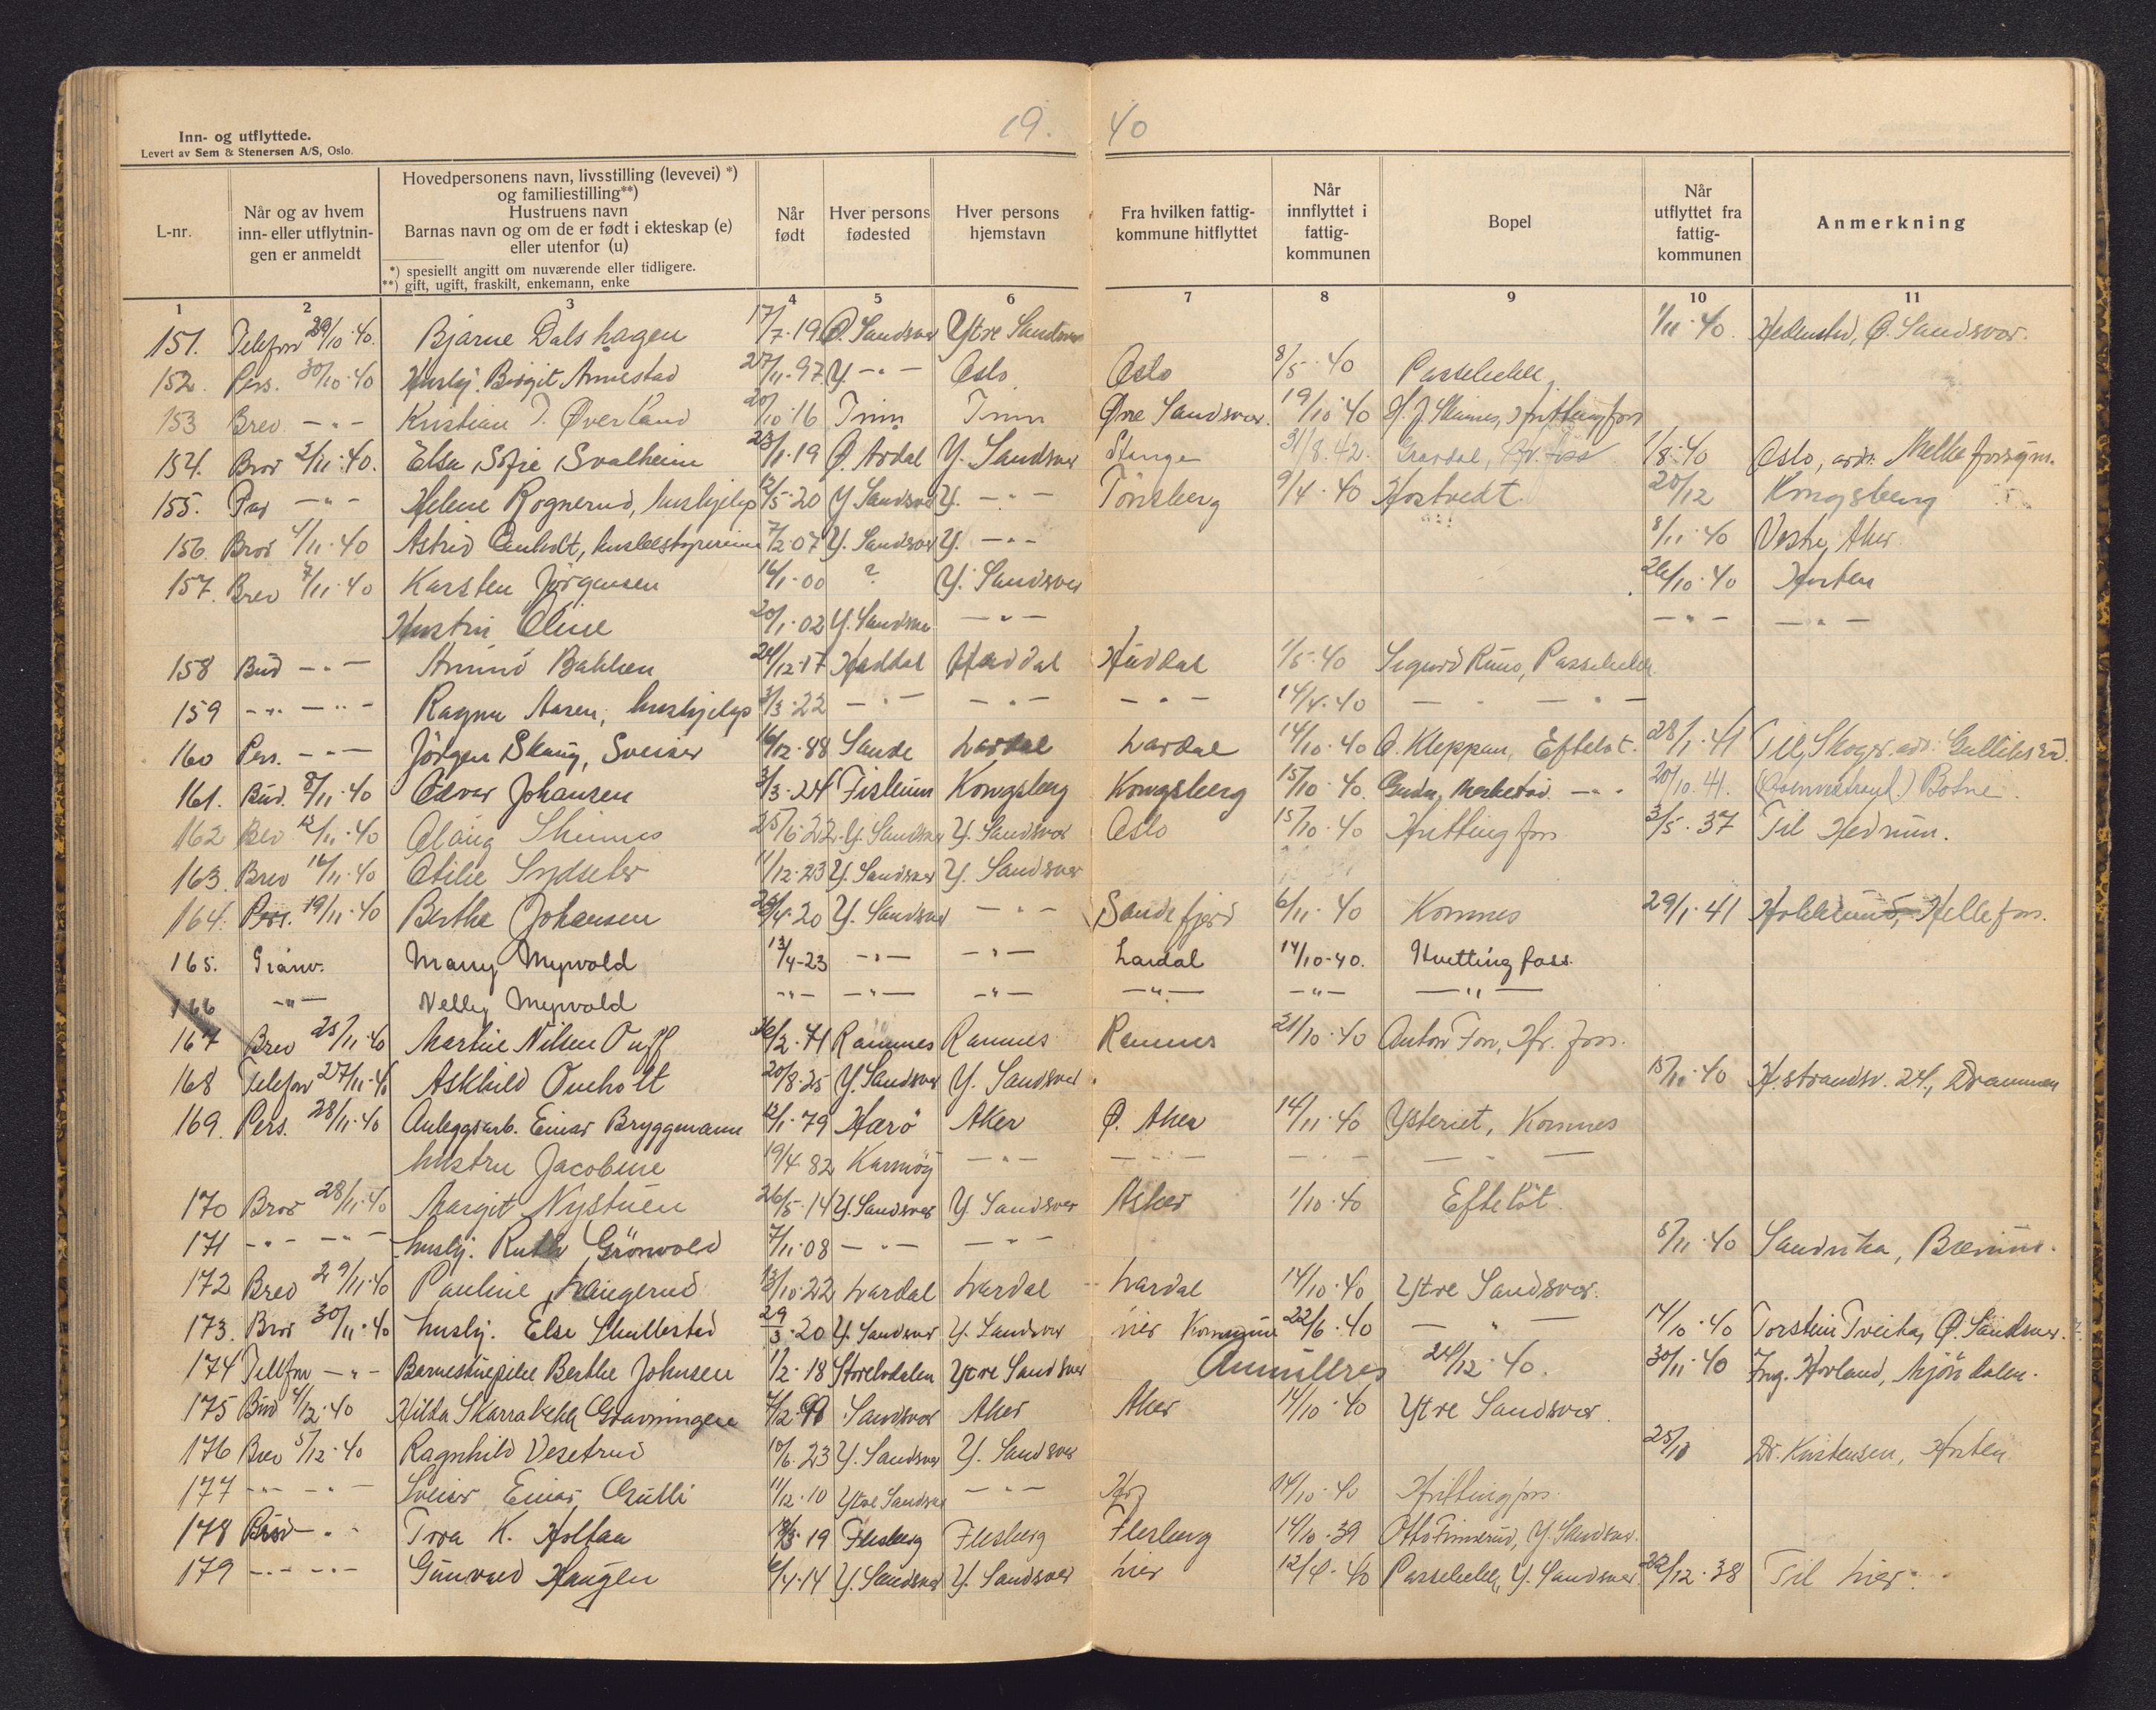 19. 40
Inn- og utflyttede.
Levert av Sem & Stenersen A/S, Oslo.
L-nr.
Når og av hvem inn- eller utflytnin- gen er anmeldt
Hovedpersonens navn, livsstilling (levevei) *)
og familiestilling**)
Hustruens navn
Barnas navn og om de er født i ekteskap (e)
eller utenfor (u)
*) spesiellt angitt om nuværende eller tidligere.
**) gift, ugift, fraskilt, enkemann, enke
Når født
Hver persons fødested
Hver persons hjemstavn
Fra hvilken fattig- kommune hitflyttet
Når innflyttet i fattig- kommunen
Bopel
Når utflyttet fra fattig- kommunen
Anmerkning
1 2 3 4 5 6 7 8 9 10 11
151. Telefon 29/10.40. Bjarne Dalshagen 17/7.19 Ø. Sandsvær Ytre Sandsvær 1/11.40. Hedenstad, Ø. Sandsvær.
152. Pers. 30/10.40 Hushj. Birgit Annestad 27/11.97 Y. -"- Oslo Oslo 8/5.40 Passebekk
153 Brev -"- Kristian T. Øverland 20/10.16 Øvre Sandsvær. 19/10.40 Hvittingfoss
154. Brev 2/11.40. Elsa Sofie Svalheim 23/1.19 Ø. Ardal Y. Sandsvær Stange 31/8.42. 1/8.40 Oslo, Melkeforsyn.
155. -"- Helene Rognerud, hushjelp 12/5.20 Y. Sandsvær Y. -"- Tönsberg 9/4.40 Hostvedt 20/12 Kongsberg
156. Brev 4/11.40 Astrid Omholt, 7/2.07 Y. Sandsvær Y. -"- 8/11.40 Vestre Aker
157. Brev 7/11.40 Karsten Jörgensen 16/1.00 ? Y. Sandsvær 26/10.40 Horten
Hustru Oline 20/1.02 Y. Sandsvær -"- -"- -"-
158 Bud -"- Bakken 24/12.17 Heddal Heddal 1/5.40 Sigurd Ruud, Passebekk.
159 -"- -"- Ragna Aasen, hushjelp 3/3.22 -"- -"- -"- 14/4.40 -"-
160 Pers. -"- Jörgen Skaug, Sveiser 16/12.88 Sande Lardal Lardal 14/10.40 O. Kleppan, Efteløt. 28/1.41 Til Skoger
161. Bud. 8/11.40 Odvar Johansen 3/3.24 Fiskum Kongsberg Kongsberg 15/10.40. -"- 20/10.41. Botne
162 Brev 12/11.40 Skinnes 25/6.22 Y. Sandsvær Y. Sandsvær Oslo 15/10.40 Hvittingfoss 3/5.37 Til Hedrum.
163. Brev 16/11.40 Otilie Sydseter 11/12.23 Y. Sandsvær Y. Sandsvær
164. Pers. 19/11.40 Berthe Johansen 25/4.20 Y. Sandsvær -"- Sandefjord 6/11.40 Komnes 29/1.41 Hokksund, Hellefoss.
165. Gränv. Marry Myrvold 13/4-23 -"- -"- Lardal 14/10-40. Hvittingfoss.
166 -"- Nelly Myrvold -"- -"- -"- -"- -"- -"-
167 Brev 25/11.40 Martin Nilsen 16/2.71 Ramnes Ramnes Ramnes 21/10.40 Anton Fon, Hv. foss.
168 Telefon 27/11.40 Askhild Omholt 20/8.25 Y. Sandsvær Y. Sandsvær 15/11.40 H.strandsv. 24, Drammen
169. Pers. 28/11.40 Anleggsarb. Einar Bryggmann 12/1.79 Aker Ø. Aker 14/11.40 Ysteriet, Komnes
hustru Jacobine 19/4.82 Karmöy -"- -"- -"- -"-
170 Brev 28/11.40 Margit Nystuen 26/5.14 Y. Sandsvær Y. Sandsvær Asker 1/10.40 Efteløt.
171 -"- -"- hushj. Ruth Grönvold 7/11.08 -"- -"- 5/11.40 Sandvika, Bærum.
172 Brev 29/11.40 Pauline Haugerud 13/10.22 Lardal Lardal Lardal 14/10.40 Ytre Sandsvær.
173. Brev 30/11.40 hushj. Else Skullestad 29/3.20 Y. Sandsvær Y. Sandsvær hier Kommune 22/6.40 -"- 14/10.40 Torstein Tveita, Ø. Sandsvær.
174 Telefon -"- Barnestuepike Berthe Johnsen 1/2.18 Storelvdalen Ytre Sandsvær Annulleres 24/12.40. 30/11.40 Ing. Hovland, Mjöndalen.
175 Bud 4/12.40 Hilda Skarrabekk Gravningen 7/2.99 Sandsvær Aker Aker 14/10.40 Ytre Sandsvær.
176 Brev 5/12.40 Ragnhild Vesetrud 10/6.23 Y. Sandsvær Y. Sandsvær 25/10 Dr. Kristensen, Horten
177 -"- -"- Sveiser Einar Gulli 11/12.10 Ytre Sandsvær -"- 14/10.40 Hvittingfoss.
178 -"- Tora K. Holtan 18/3.19 Flesberg Flesberg Flesberg 14/10.39 Otto Finnerud, Y. Sandsvær.
179 -"- -"- Gunvald Haugen 6/4.14 Y. Sandsvær Y. Sandsvær hier 12/4.40 Passebekk, Y. Sandsvær. 22/12.38 Til hier.